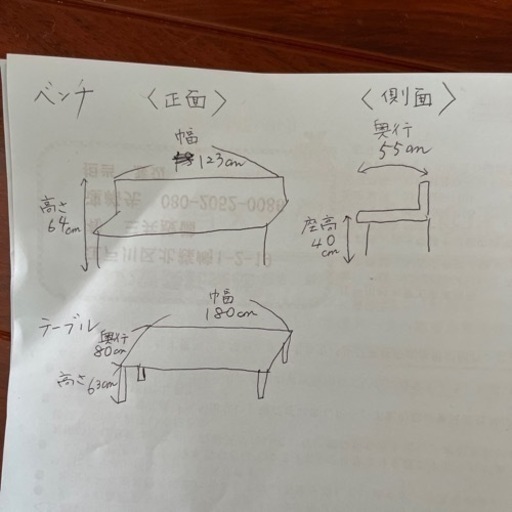 ベンチ 〈正面〉 〈側面〉
幅
123cm
高さ
64cm
奥行
55cm
座高
40
cm
テーブル
幅
180cm
奥行
80cm
高さ63cm
080-2052-0086